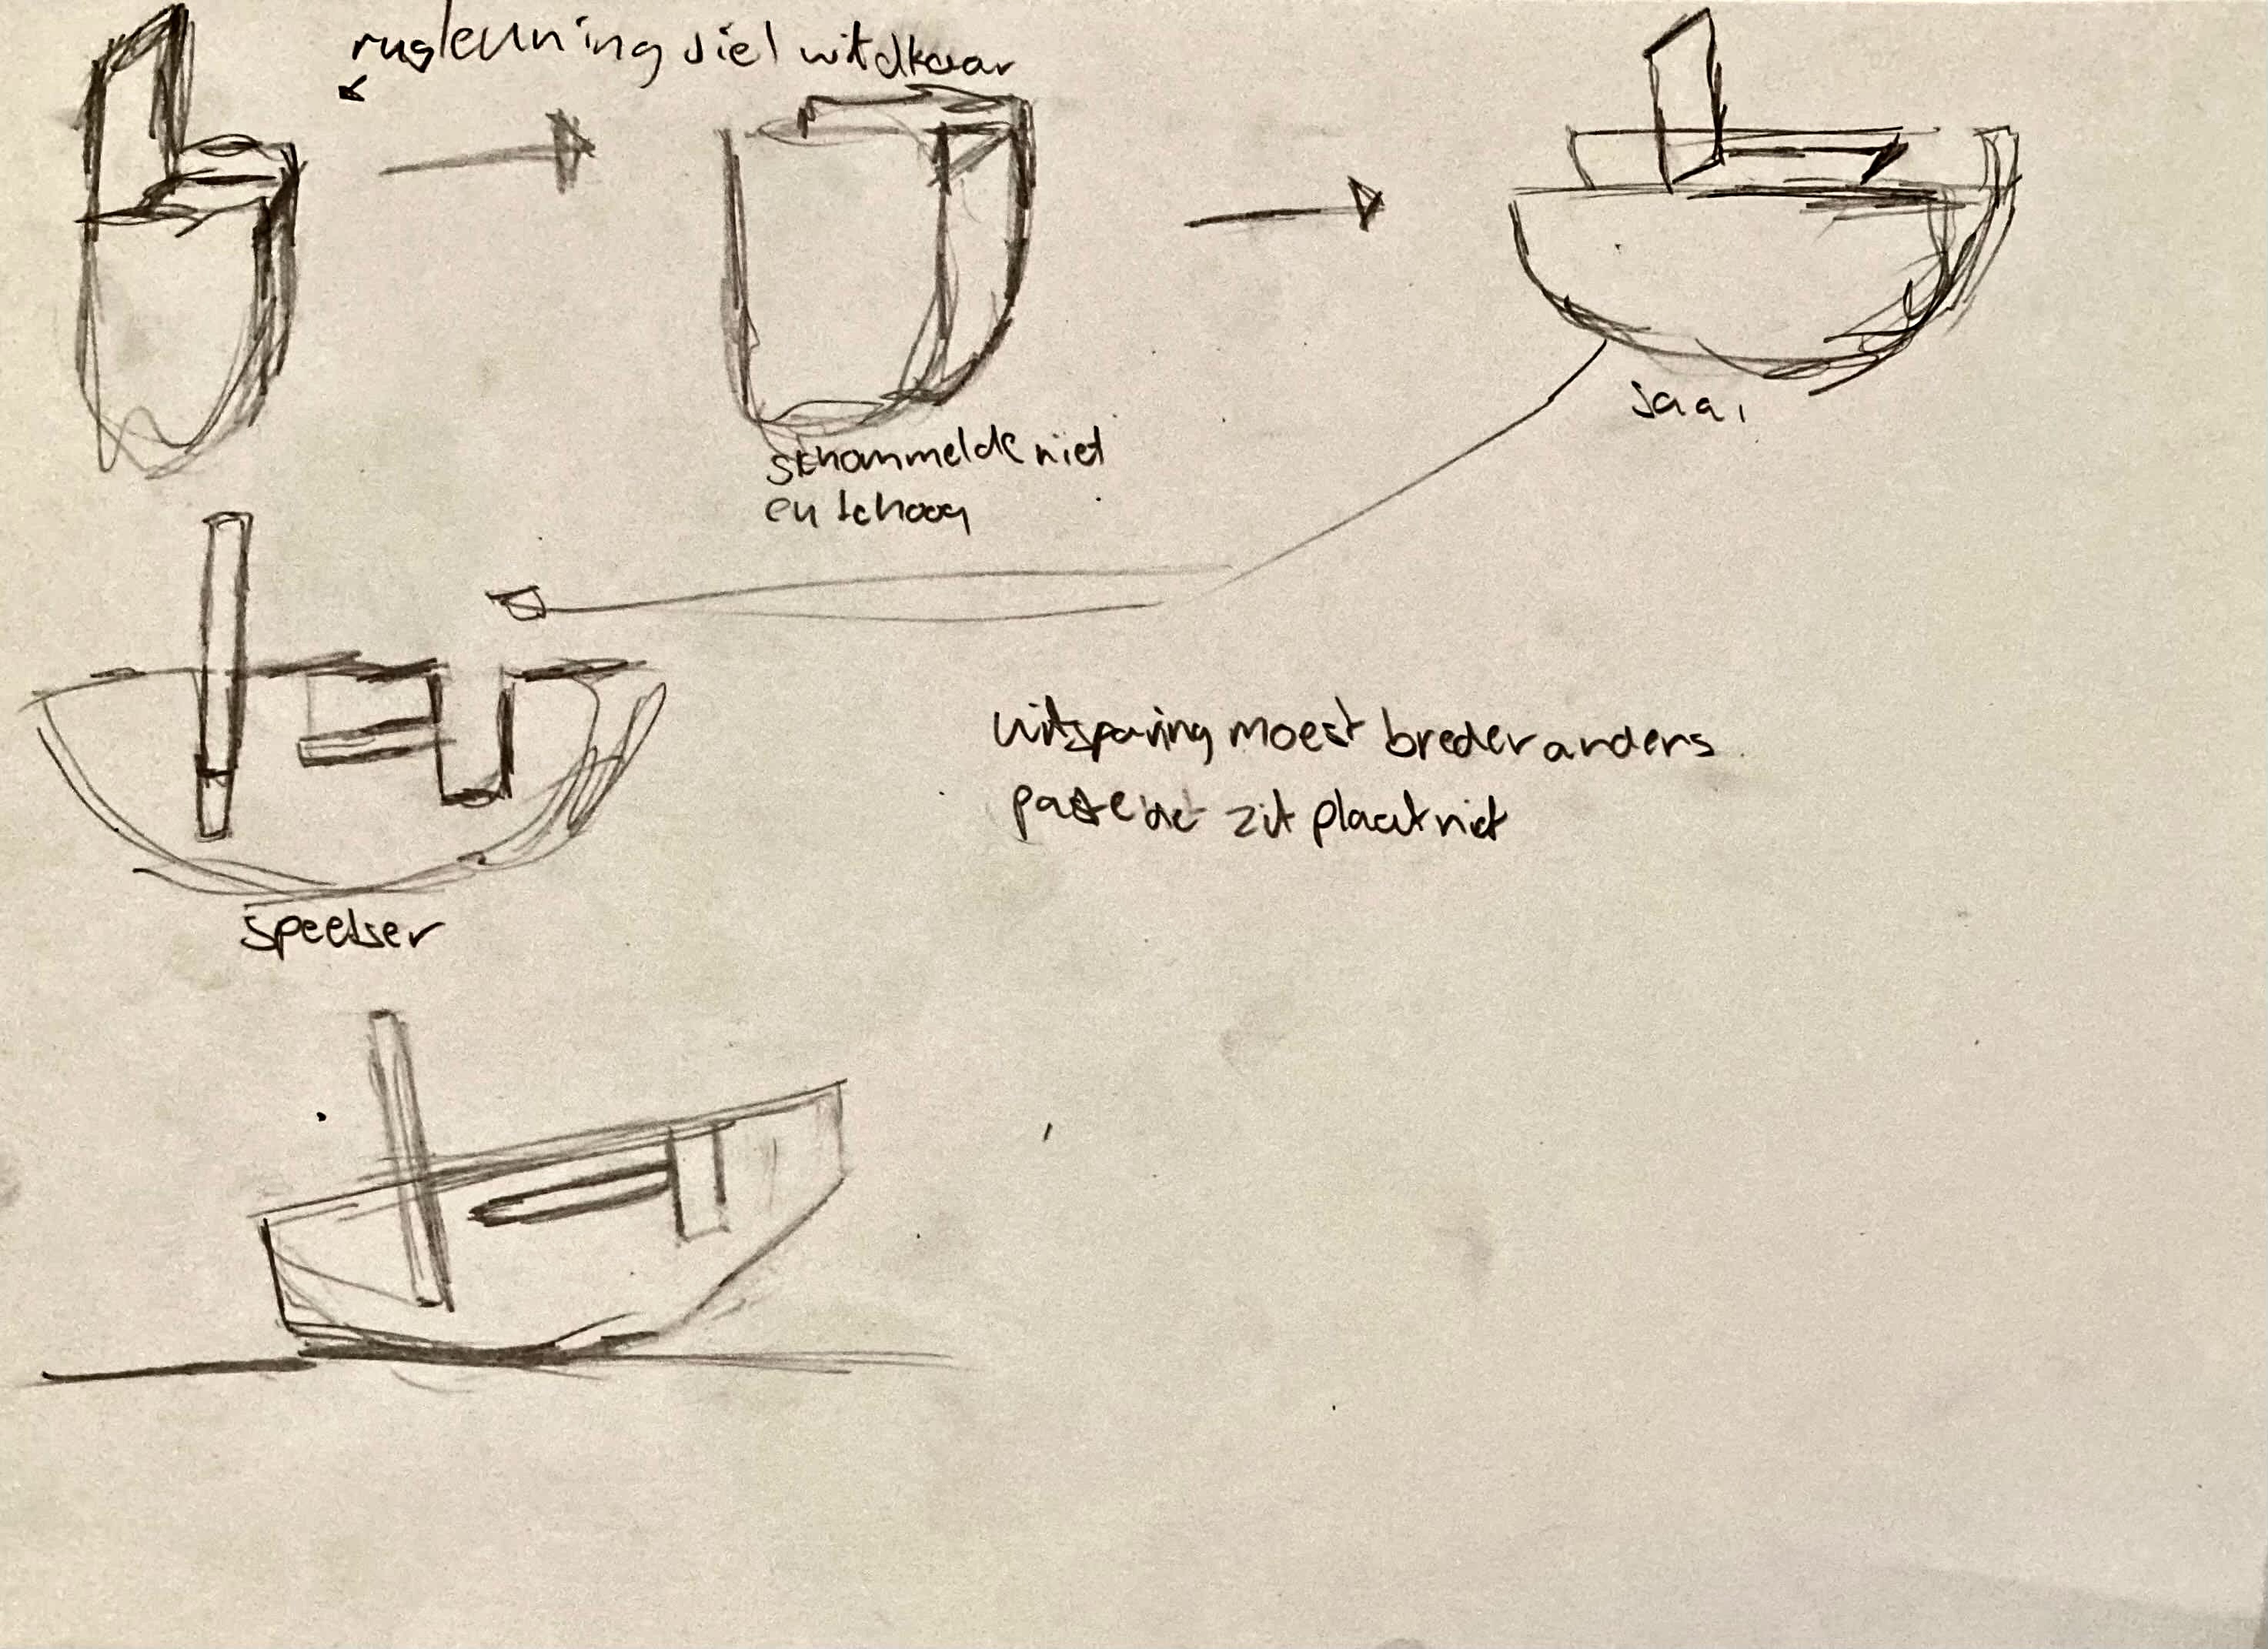 rugleuning viel uit elkaar
schommelde niet
en te hoog
saai
uitsparing moest breder anders
paste de zit plaat niet
speelser